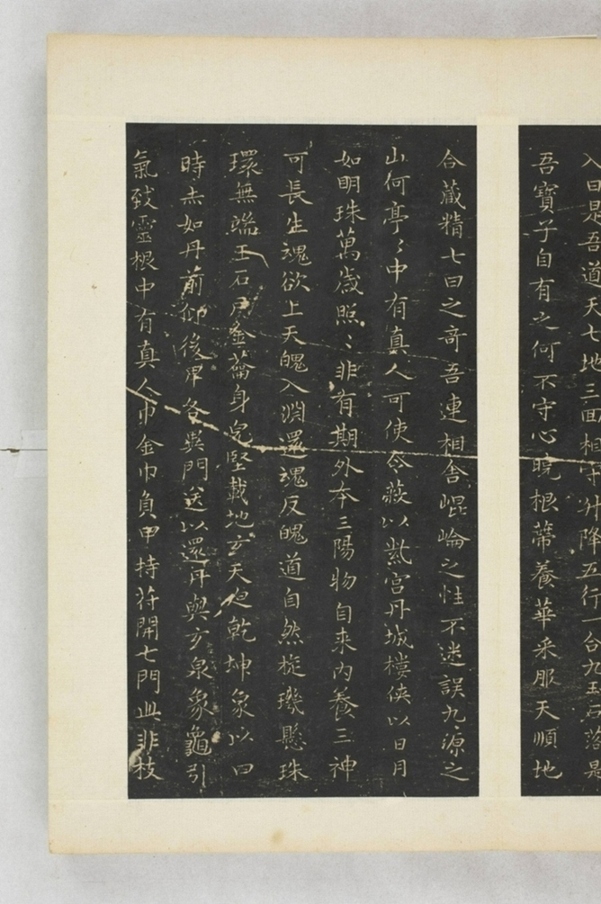 入日是吾道天七地三回相守升降五行一合九玉石落是
吾寶子自有之何不守心曉根蒂養華采服天順地
合藏精七日之奇吾連相舍崐崘之性不迷誤九源之
山何亭〻中有真人可使令蔽以紫宮丹城樓俠以日月
如明珠萬歲照〻非有期外本三陽物自来内養三神
可長生魂欲上天魄入淵還魂反魄道自然琁璣懸珠
環無端玉石戶金籥身皃堅載地玄天迫乾坤象以四
時赤如丹前仰後卑各異門送以還丹與玄泉象龜引
氣致靈根中有真人巾金巾負甲持苻開七門此非枝